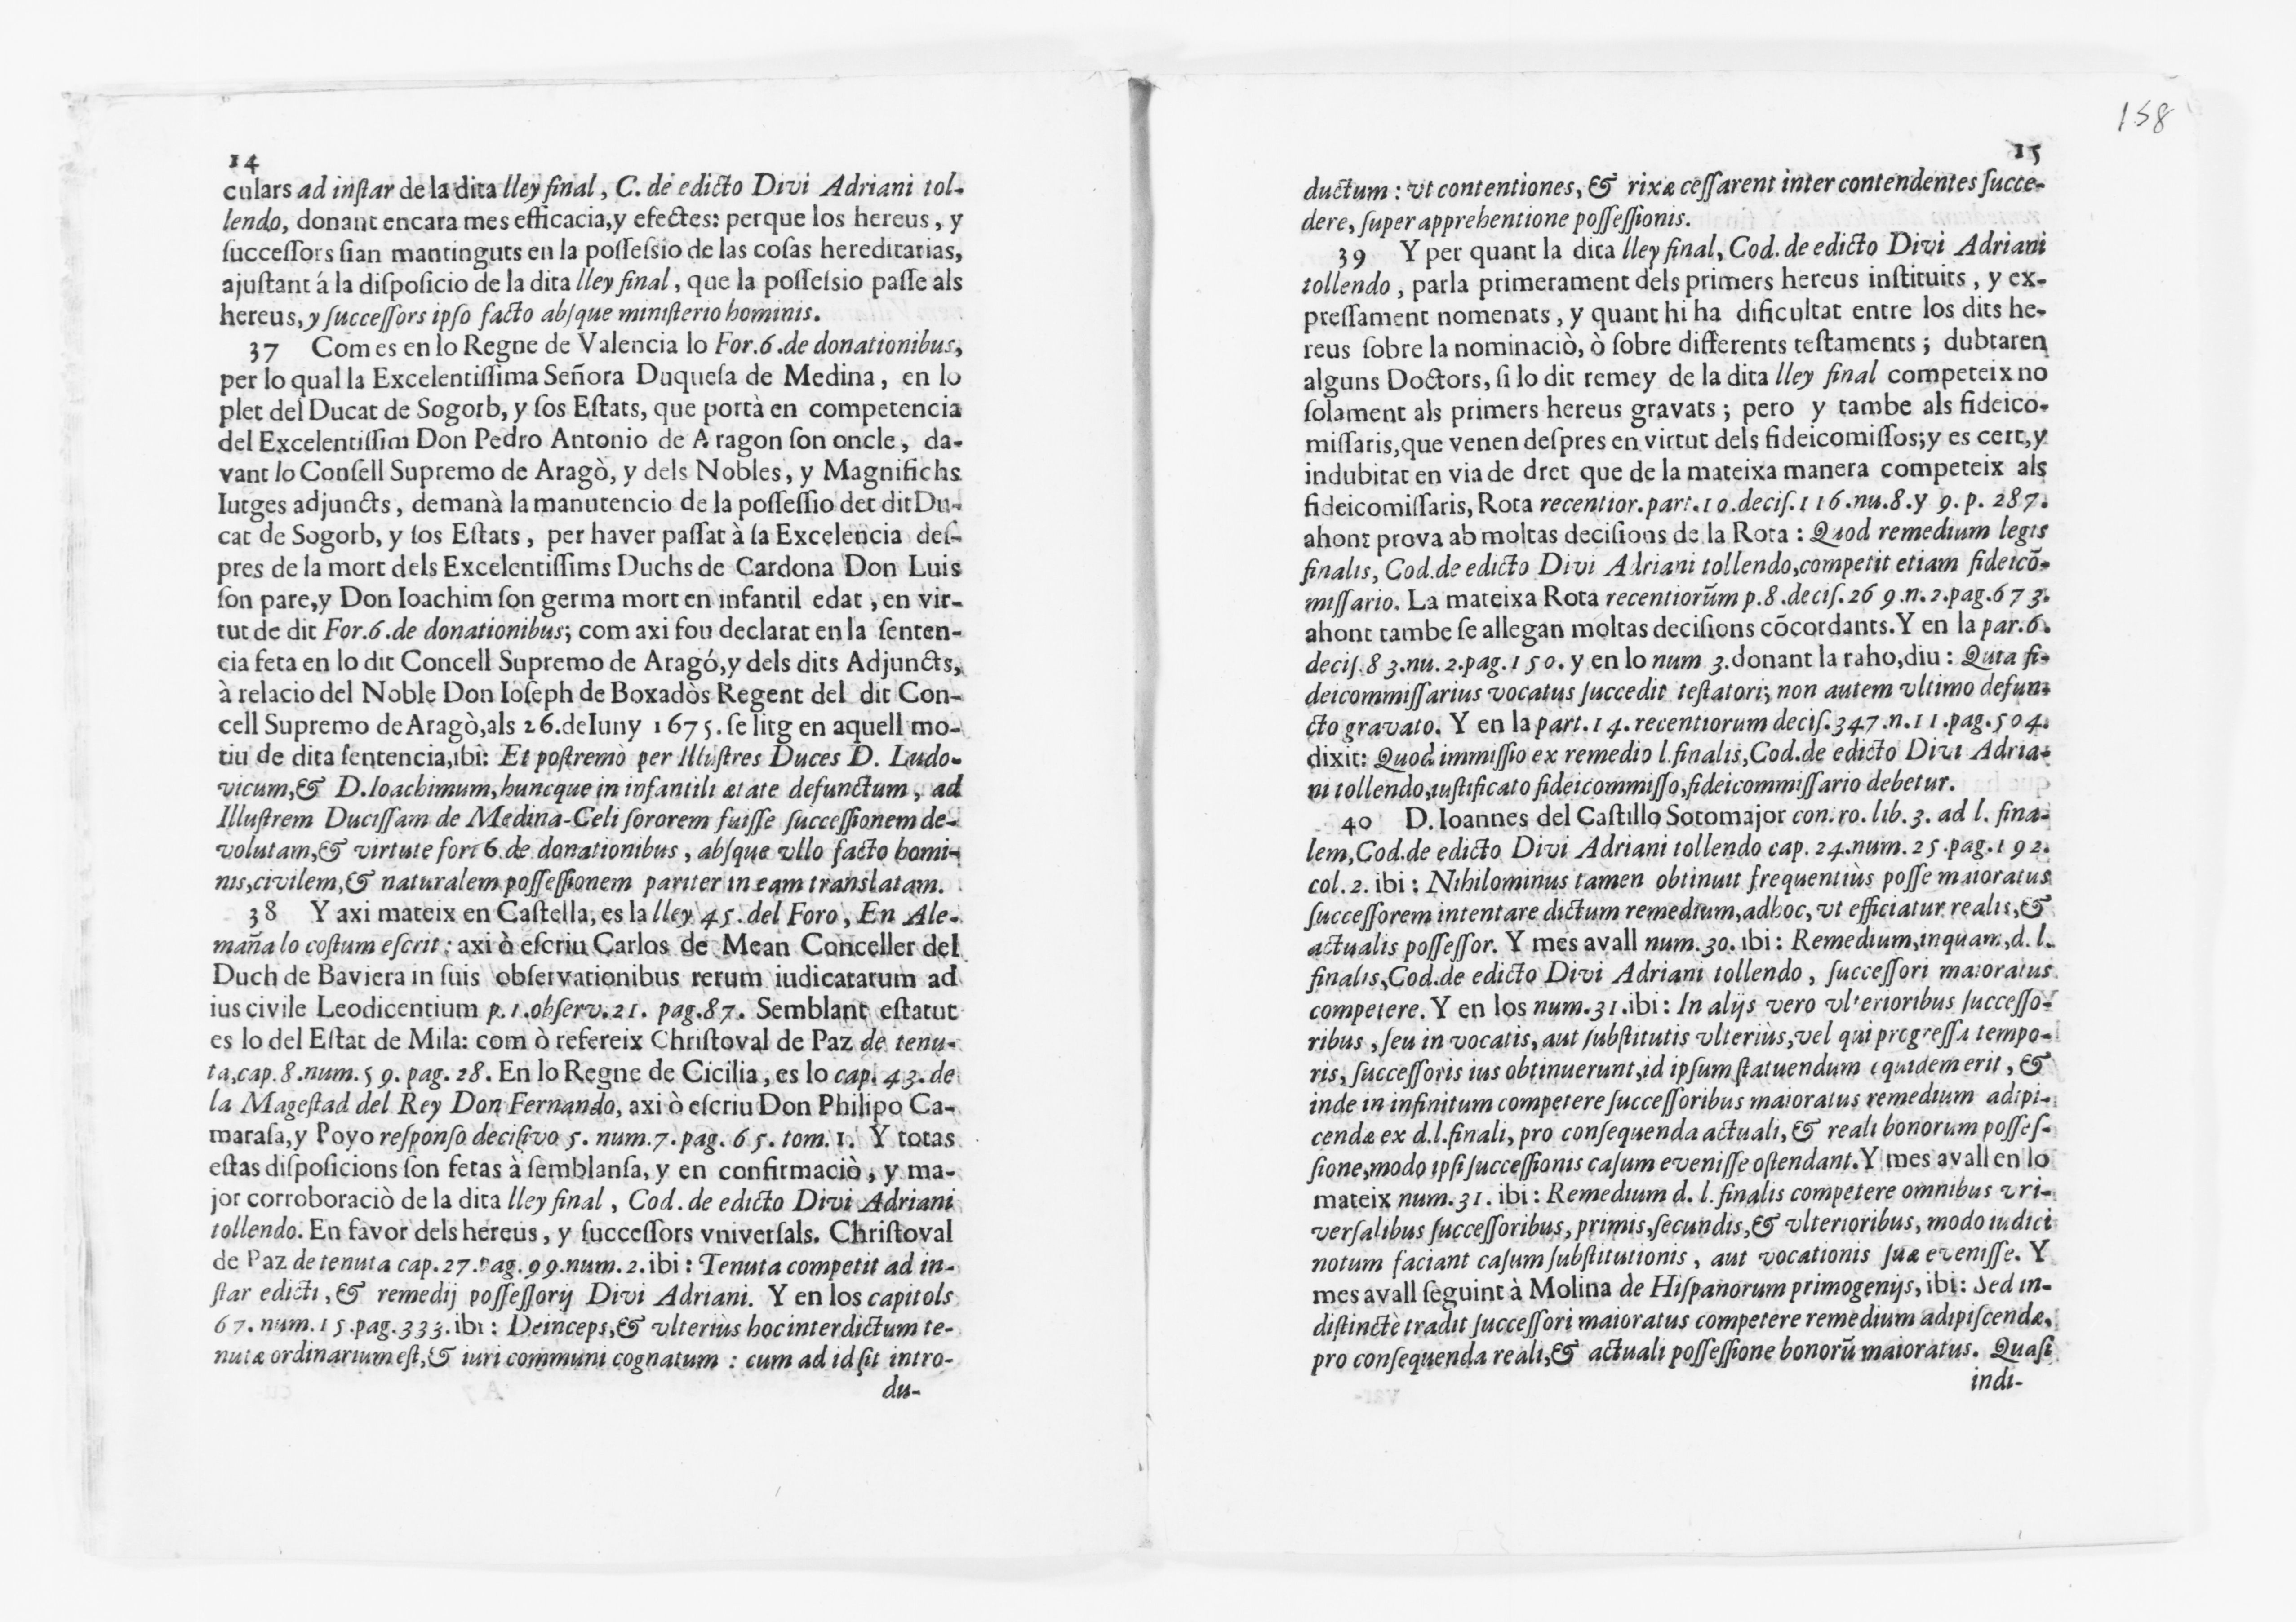 14
culars ad instar de la dita lley final, C. de edicto Divi Adriani tol-
lendo, donant encara mes efficacia,y efectes: perque los hereus, y
successors sian mantinguts en la possessio de las cosas hereditarias,
ajustant á la disposicio de la dita lley final, que la possessio passe als
hereus, y successors ipso facto absque ministerio hominis.
37 Com es en lo Regne de Valencia lo For.6.de donationibus,
per lo qual la Excelentissima Señora Duquesa de Medina, en lo
plet del Ducat de Sogorb, y sos Estats, que portà en competencia
del Excelentissim Don Pedro Antonio de Aragon son oncle, da-
vant lo Consell Supremo de Aragò, y dels Nobles, y Magnifichs
Iutges adjuncts, demanà la manutencio de la possessio det dit Du-
cat de Sogorb, y sos Estats, per haver passat à sa Excelencia des-
pres de la mort dels Excelentissims Duchs de Cardona Don Luis
son pare,y Don Ioachim son germa mort en infantil edat, en vir-
tut de dit For.6.de donationibus; com axi fou declarat en la senten-
cia feta en lo dit Concell Supremo de Aragó,y dels dits Adjuncts,
à relacio del Noble Don Ioseph de Boxadòs Regent del dit Con-
cell Supremo de Aragò,als 26.de Iuny 1675.se litg en aquell mo-
tiu de dita sentencia,ibi: Et postremò per Illustres Duces D. Ludo-
vicum,& D.Ioachimum,huncque in infantili ætate defunctum, ad
Illustrem Ducissam de Medina-Celi sororem fuisse successionem de-
volutam,& virtute fori 6.de donationibus, absque vllo facto homi-
nis,civilem,& naturalem possessionem pariter in eam translatam.
38 Y axi mateix en Castella, es la lley 45.del Foro, En Ale-
maña lo costum escrit: axi ò escriu Carlos de Mean Conceller del
Duch de Baviera in suis observationibus rerum iudicatarum ad
ius civile Leodicentium p.1.observ.21. pag.87. Semblant estatut
es lo del Estat de Mila: com ò refereix Christoval de Paz de tenu-
ta,cap.8.num.59.pag.28. En lo Regne de Cicilia, es lo cap.43.de
la Magestad del Rey Don Fernando, axi ò escriu Don Philipo Ca-
marasa,y Poyo responso decisivo 5. num.7.pag.65.tom.1. Y totas
estas disposicions son fetas à semblansa, y en confirmaciò, y ma-
jor corroboraciò de la dita lley final, Cod.de edicto Divi Adriani
tollendo. En favor dels hereus, y successors vniversals. Christoval
de Paz de tenuta cap.27.pag.99.num.2.ibi: Tenuta competit ad in-
star edicti, & remedij possessorij Divi Adriani. Y en los capitols
67.num.15.pag.333.ibi: Deinceps,& vlteriùs hoc interdictum te-
nutæ ordinarium est,& iuri communi cognatum: cum ad id sit intro-
du-
158
15
ductum: vt contentiones, & rixæ cessarent inter contendentes succe-
dere, super apprehentione possessionis.
39 Y per quant la dita lley final, Cod.de edicto Divi Adriani
tollendo, parla primerament dels primers hereus instituits, y ex-
pressament nomenats, y quant hi ha dificultat entre los dits he-
reus sobre la nominaciò, ò sobre differents testaments; dubtaren
alguns Doctors, si lo dit remey de la dita lley final competeix no
solament als primers hereus gravats; pero y tambe als fideico-
missaris,que venen despres en virtut dels fideicomissos;y es cert,y
indubitat en via de dret que de la mateixa manera competeix als
fideicomissaris, Rota recentior.part.10.decis.116.nu.8.y 9.p.287.
ahont prova ab moltas decisions de la Rota: Quod remedium legis
finalis, Cod.de edicto Divi Adriani tollendo,competit etiam fideicõ-
missario. La mateixa Rota recentiorũm p.8.decis.269.n.2.pag.673.
ahont tambe se allegan moltas decisions cõcordants.Y en la par.6.
decis.83.nu.2.pag.150.y en lo num 3.donant la raho,diu: Quia fi-
deicommissarius vocatus succedit testatori; non autem vltimo defun-
cto gravato. Y en la part.14.recentiorum decis.347.n.11.pag.504.
dixit: Quod immissio ex remedio l.finalis,Cod.de edicto Divi Adria-
ni tollendo,iustificato fideicommisso,fideicommissario debetur.
40 D.Ioannes del Castillo Sotomajor con.ro.lib.3. ad l. fina-
lem,Cod.de edicto Divi Adriani tollendo cap.24.num.25.pag.192.
col.2. ibi: Nihilominus tamen obtinuit frequentiùs posse maioratus
successorem intentare dictum remedium,adhoc,vt efficiatur realis,&
actualis possessor. Y mes avall num.30. ibi: Remedium,inquam,d.l.
finalis,Cod.de edicto Divi Adriani tollendo, successori maioratus
competere. Y en los num.31.ibi: In alijs vero vlterioribus successo-
ribus, seu in vocatis, aut substitutis vlteriùs,vel qui progressu tempo-
ris, successoris ius obtinuerunt,id ipsum statuendum equidem erit, &
inde in infinitum competere successoribus maioratus remedium adipi-
cendæ ex d.l.finali, pro consequenda actuali,& reali bonorum posses-
sione,modo ipsi successionis casum evenisse ostendant.Y mes avall en lo
mateix num.31. ibi: Remedium d. l. finalis competere omnibus vri-
versalibus successoribus, primis,secundis,& vlterioribus, modo iudici
notum faciant casum substitutionis, aut vocationis suæ evenisse. Y
mes avall seguint à Molina de Hispanorum primogenijs, ibi: Sed in-
distinctè tradit successori maioratus competere remedium adipiscendæ,
pro consequenda reali,& actuali possessione bonorũ maioratus. Quasi
indi-